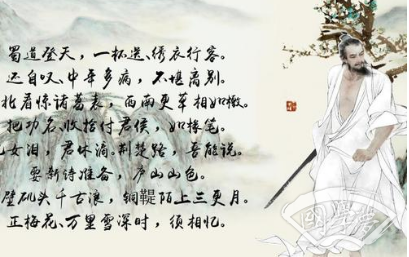 蜀道登天,一杯送、绣衣行客。
还自叹、中年多病,不堪离别。
北看惊诸葛表,西南更草相如檄。
把功名、收拾付君侯,如椽笔。
女泪,君休滴。荆楚路,吾能说。
要新诗准备,庐山山色。
壁矶头千古浪,铜鞮陌上三更月。
正梅花、万里雪深时,须相忆。